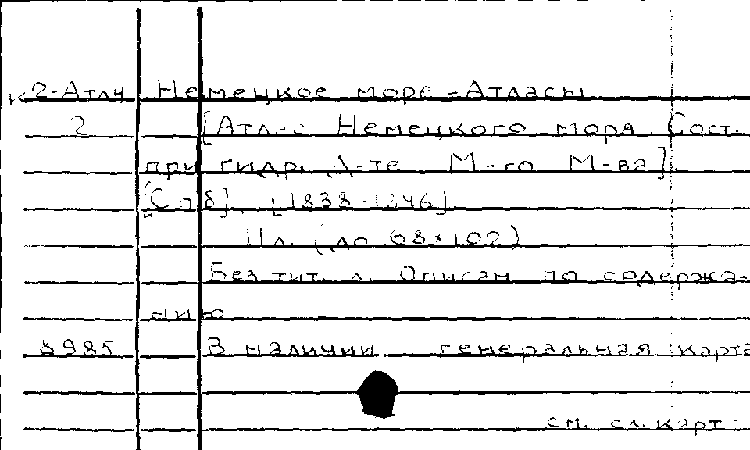 К2-Атл4 Немецкое море - Атласы
2 [Атл-с Немецкого моря Сост.
при гидр. Д-те М-го М-ва]
[Спб], [1838-1846]
11 л. (до 68×102)
Без тит. л. Описан по содержа-
нию
8985 В наличии генеральная карта
см. сл. карт.